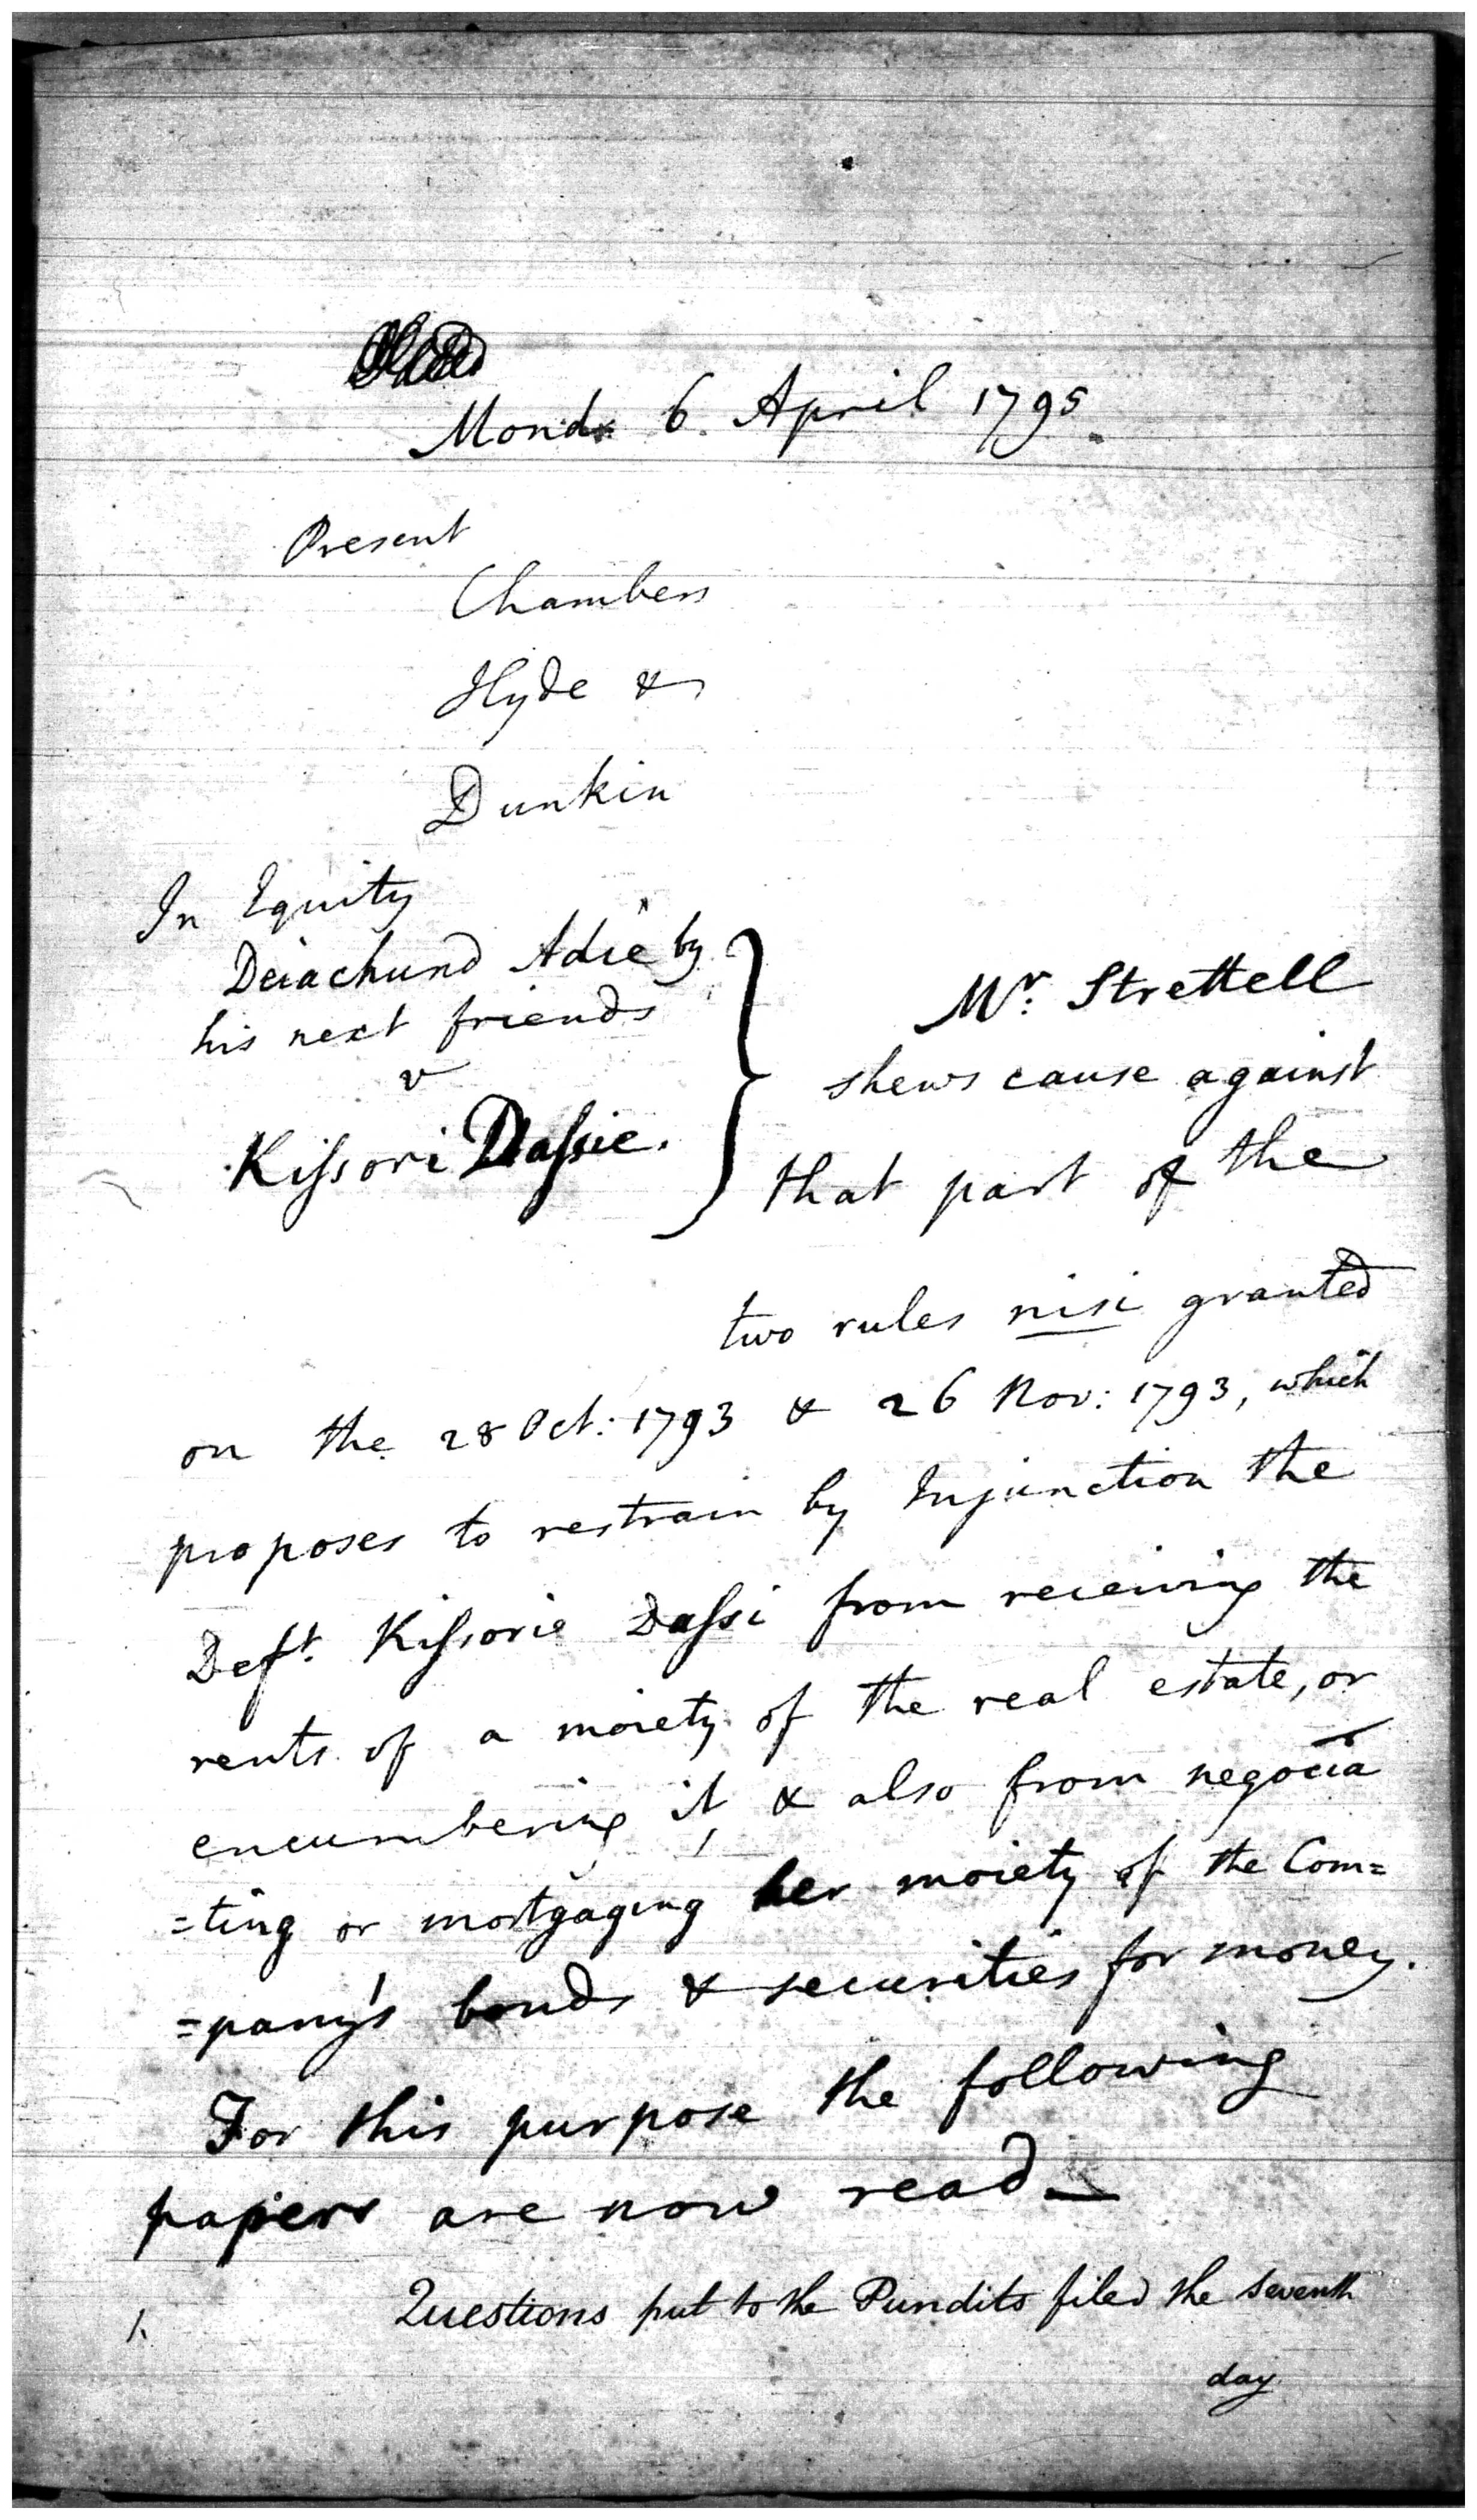 Mond. 6. April 1795.
Present
Chambers
Hyde &
Dunkin
In Equity
Deiachund Adie by
his next friends
v
Kiſsori Daſsie.
Mr. Strettell
shews cause against
that part of the
two rules nisi granted
on the 28 Oct: 1793 & 26 Nov: 1793, which
proposes to restrain by Injunction the
Deft. Kiſsorie Daſsi from receiving the
rents of a moiety of the real estate, or
encumbering it, & also from negocia
=ting or mortgaging her moiety of the Com=
=pany's bonds & securities for money.
For this purpose the following
papers are now read—
1. Questions put to the Pundits filed the seventh
day